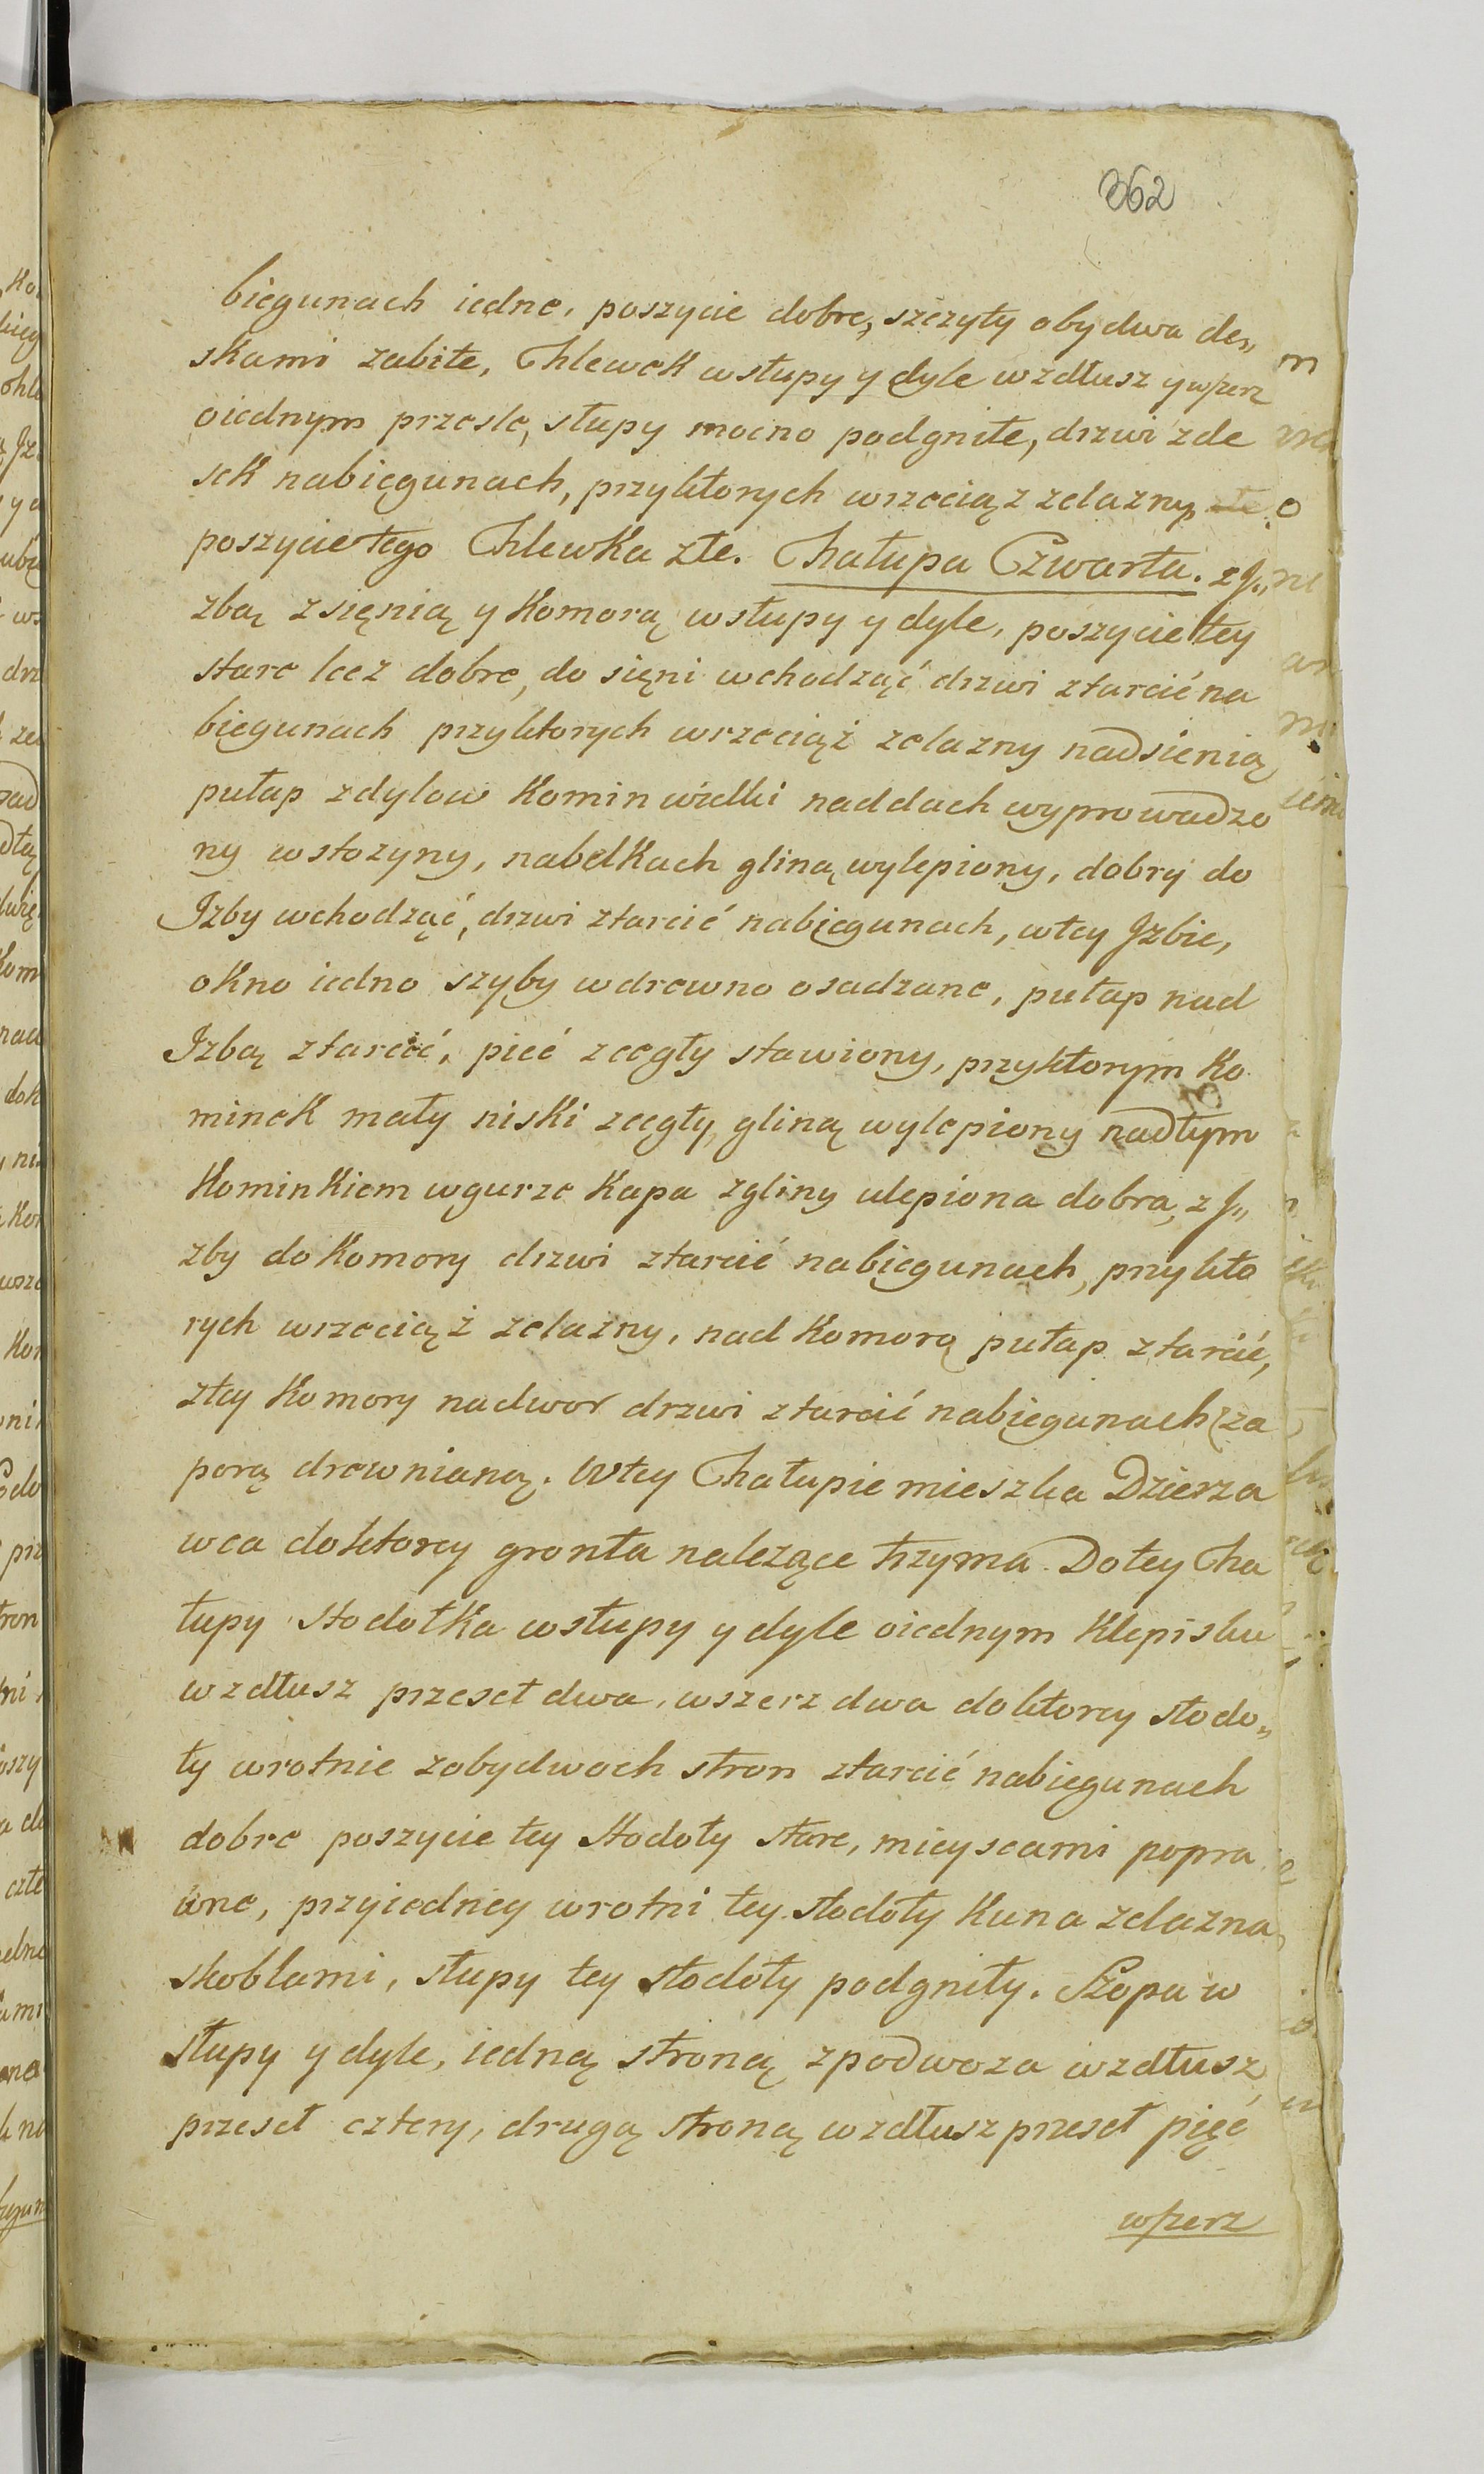 362
biegunach iedne, poszycie dobre, szczyty obydwa de„
skami zabite, Chlewek wsłupy y dyle wzdłusz y wszerz
oiednym przesle, słupy mocno podgniłe, drzwi zde
sek nabiegunach, przyktorych wrzeciąz zelazny,
poszycie tego Chlewka złe. Chałupa Czwarta. z J„
zbą zsięnią y Komorą wsłupy y dyle, poszycie tey
stare lecz dobre, do sięni wchodząć drzwi ztarcić na
biegunach przyktorych wrzeciąż zelazny nadsienią
pułap zdylow Komin wielki naddach wyprowadzo
ny wstozyny, nabelkach gliną wylepiony, dobry do
Izby wchodząć, drzwi ztarcić nabiegunach, wtey Jzbie,
okno iedno szyby wdrewno osadzane, pułap nad
Izbą ztarcić, pieć zcegły stawiony, przyktorym Ko
minek mały niski zcegły, gliną wylepiony nadtym
Kominkiem wgurze Kapa zgliny ulepiona dobra, z J„
zby do Komory drzwi ztarcić nabiegunach, przykto
rych wrzeciąż zelazny, nad Komorą pułap ztarcić,
ztey Komory nadwor drzwi ztarcić nabiegunach zza
porą drewnianą. Wtey Chałupie mieszka Dzierza
wca doktorey gronta nalezące trzyma. Dotey Cha
łupy Stodołka wsłupy y dyle oiednym Klepisku
wzdłusz przeseł dwa, wszerz dwa doktorey stodo„
ły wrotnie zobydwoch stron ztarcić nabiegunach
dobre poszycie tey Stodoły stare, mieyscami popra
wne, przyiedney wrotni tey Stodoły Kuna zelazna
skoblami, słupy tey stodoły podgniły. Szopa w
słupy y dyle, iedną stroną zpodworza wzdłusz
przeseł cztery, drugą stroną wzdłusz przeseł pięć
wszerz